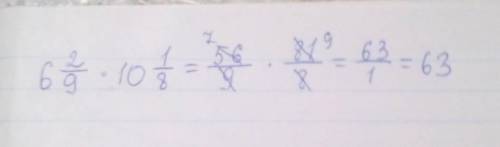 6 2/9 · 10 1/8 = 7 56/9 · 81 9/8 = 63/1 = 63